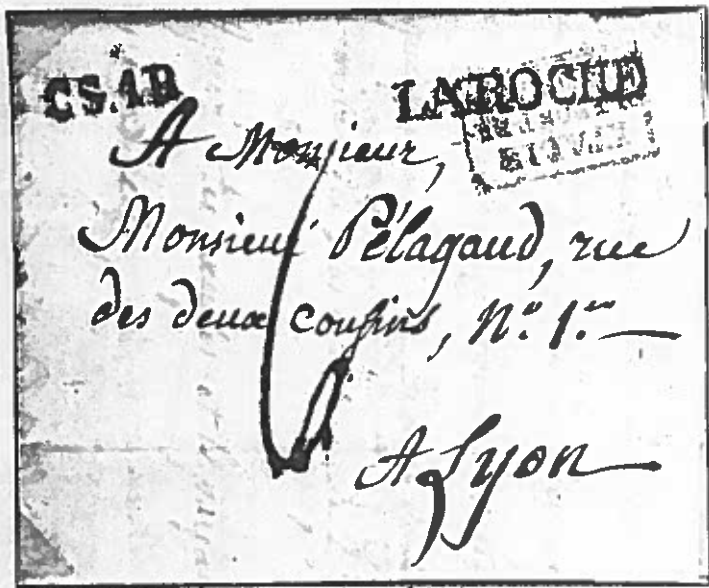 C.S.A.R. LAROCHE
A Monsieur,
Monsieur Pélagaud, rue
des deux cousins, N.o 1.er
A Lyon
6